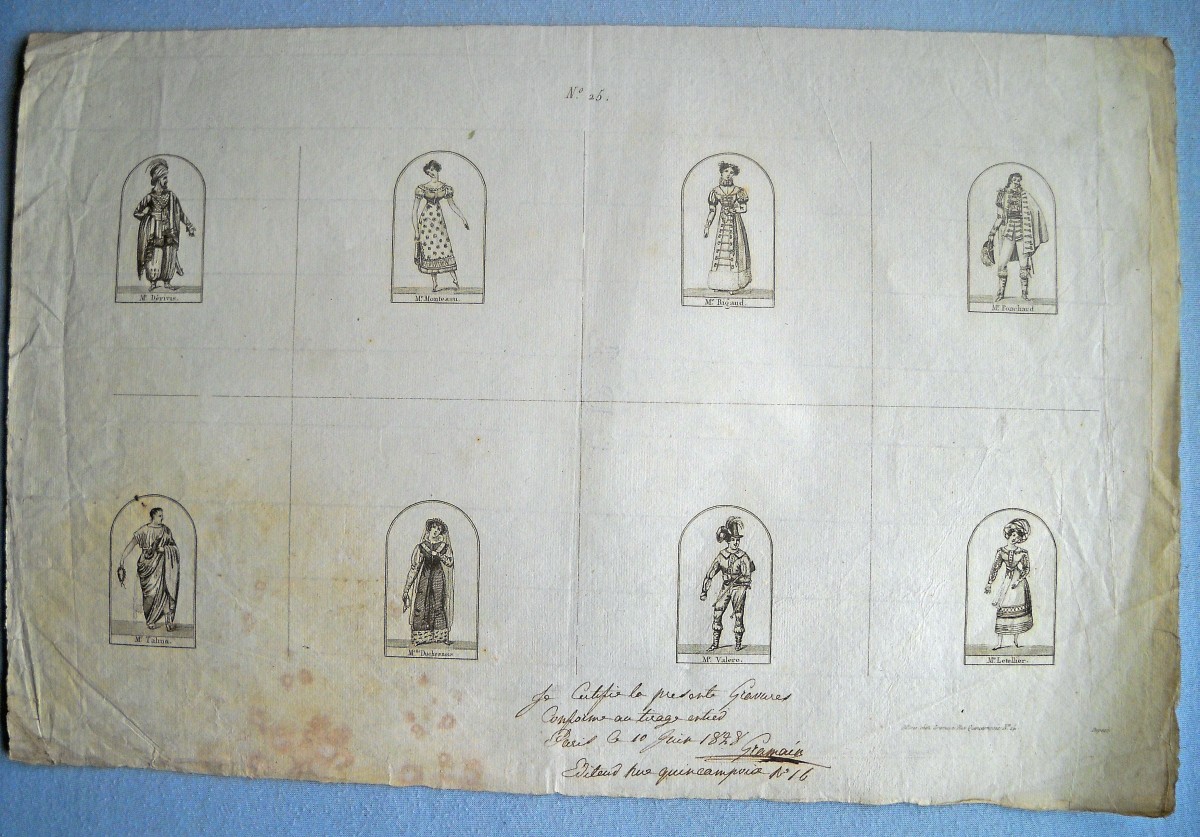 N.º 25.
Mʳ. Dérivis.
Mˡˡᵉ. Monteau.
Mˡˡᵉ. Rigaud
Mʳ. Ponchard
Mʳ. Talma.
Mˡˡᵉ. Duchesnois.
Mʳ. Valère.
Mˡˡᵉ. Letellier.
Je Certifie la presente Gravures
Conforme au tirage entier
Paris le 10 Juin 1828
Gramain
Editeur Rue quincampoix N° 16